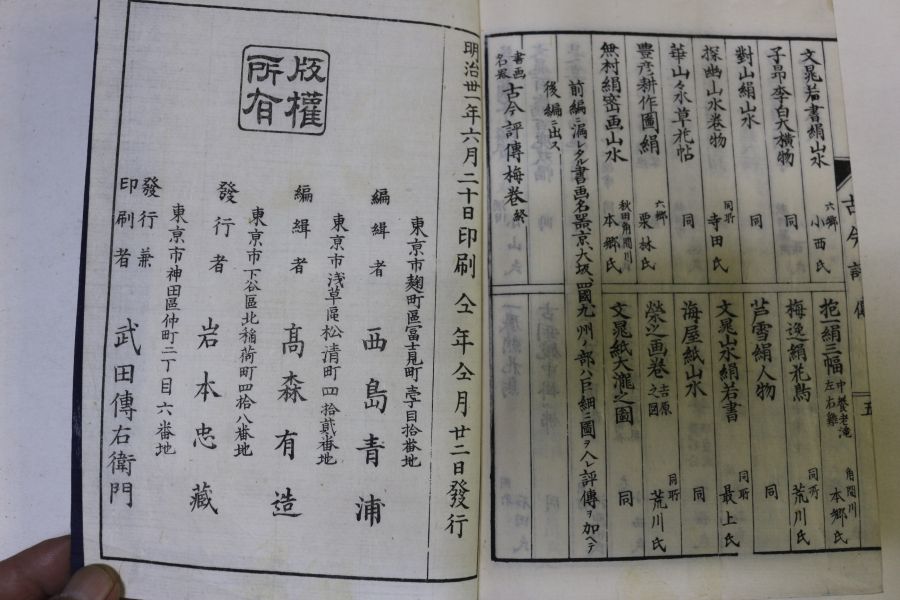 文晁若書絹山水 六郷 小西氏
子昻李白大横物 同
對山絹山水 同
探幽山水巻物 同所 寺田氏
華山々水草花帖 同
豊彦耕作圖絹 六郷 栗林氏
無村絹密画山水 秋田角間川 本郷氏
抱一絹三幅 中養老滝 左右雞 角間川 本郷氏
梅逸絹花鳥 同所 荒川氏
芦雪絹人物 同
文晁山水絹若書 同所 最上氏
海屋紙山水 同
榮之画巻 吉原之図 同所 荒川氏
文晁紙大瀧之圖 同
前編ニ漏レタル書画名器京、大坂、四國九州ノ部ハ巨細ニ圖ヲ入レ評傳ヲ加ヘテ
後編ニ出ス
書画名器 古今評傳梅巻 終
古今評傳
五
明治廿一年六月二十日印刷 仝年仝月廿二日發行
版權所有
東京市麹町區富士見町壹丁目拾番地
編緝者 西島青浦
東京市浅草區松清町四拾貳番地
編緝者 髙森有造
東京市下谷區北稲荷町四拾八番地
發行者 岩本忠藏
東京市神田區仲町二丁目六番地
發行兼印刷者 武田傳右衛門